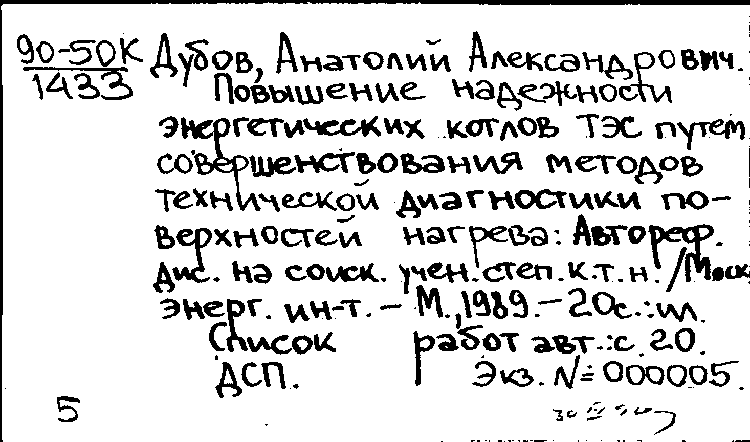 90-50К Дубов, Анатолий Александрович.
1433 Повышение надежности
энергетических котлов ТЭС путем
совершенствования методов
технической диагностики по-
верхностей нагрева: Автореф.
дис. на соиск. учен. степ. к.т.н. /Моск.
энерг. ин-т. – М., 1989. – 20с.:ил.
Список работ авт.:с. 20.
ДСП. Экз. № 000005.
5